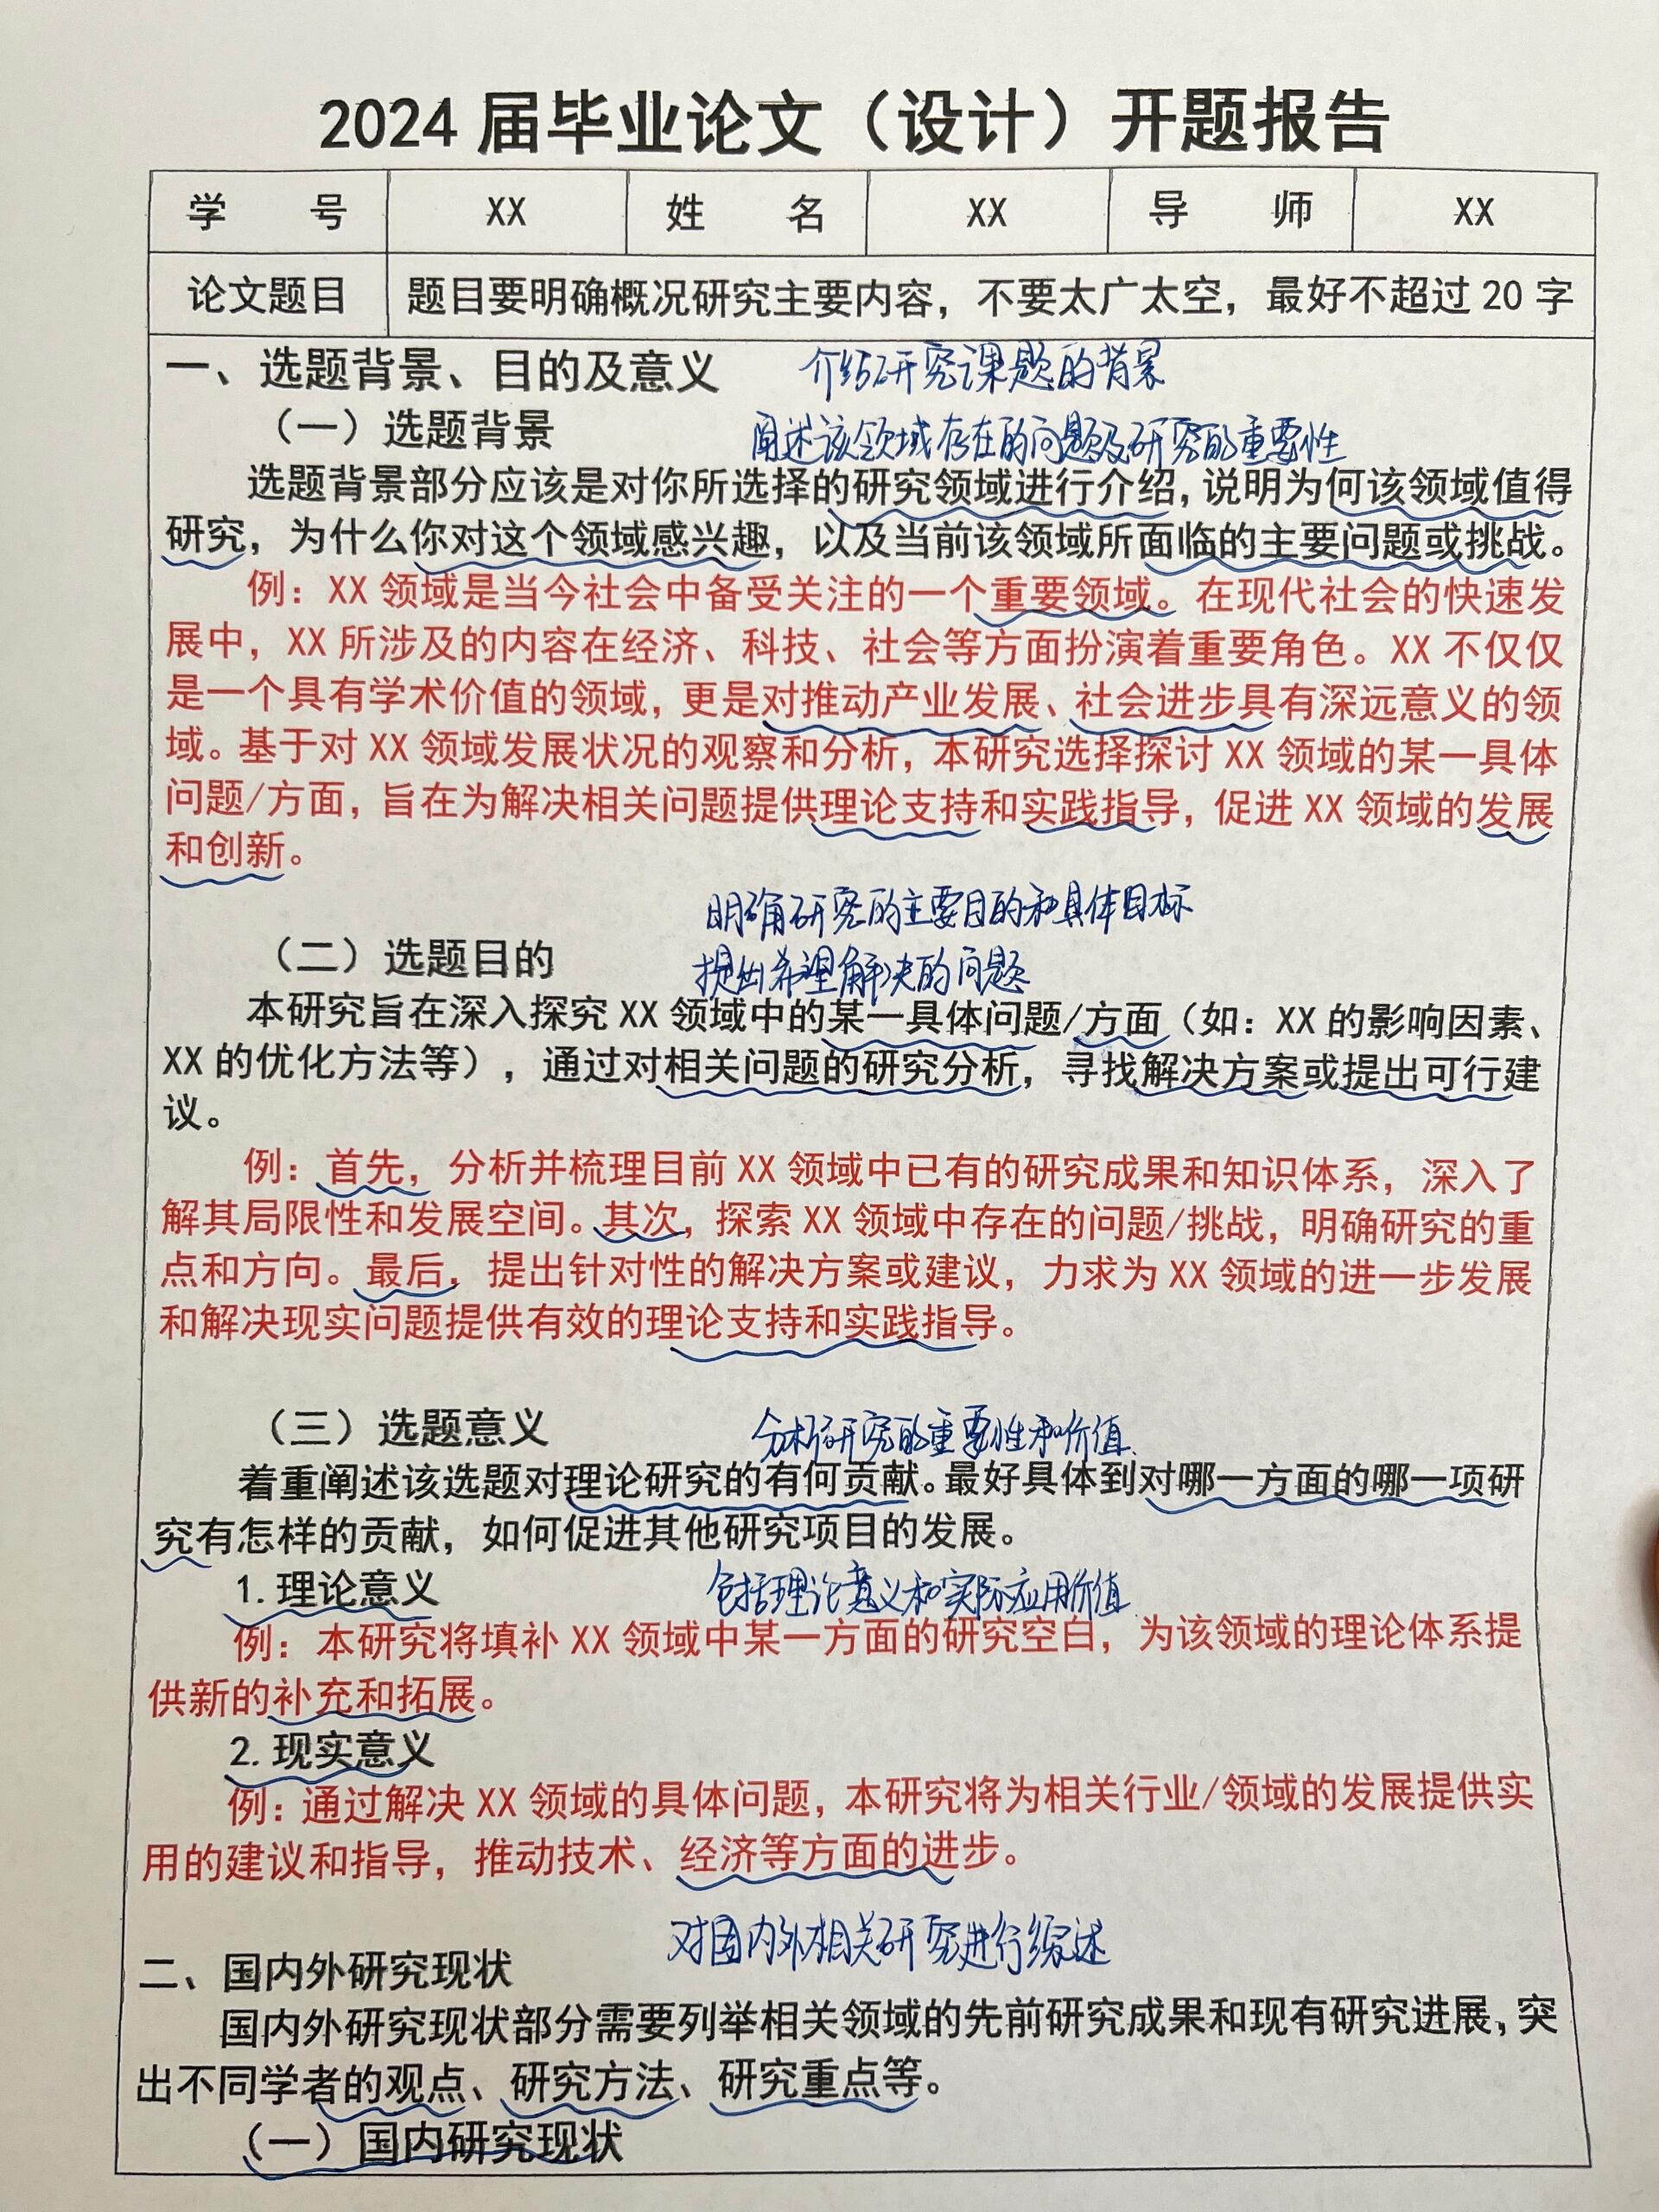 2024 届毕业论文（设计）开题报告
学 号 XX 姓 名 XX 导 师 XX
论文题目 题目要明确概况研究主要内容，不要太广太空，最好不超过 20 字
一、选题背景、目的及意义 介绍研究课题的背景
（一）选题背景 阐述该领域存在的问题及研究的重要性
选题背景部分应该是对你所选择的研究领域进行介绍，说明为何该领域值得
研究，为什么你对这个领域感兴趣，以及当前该领域所面临的主要问题或挑战。
例：XX 领域是当今社会中备受关注的一个重要领域。在现代社会的快速发
展中，XX 所涉及的内容在经济、科技、社会等方面扮演着重要角色。XX 不仅仅
是一个具有学术价值的领域，更是对推动产业发展、社会进步具有深远意义的领
域。基于对 XX 领域发展状况的观察和分析，本研究选择探讨 XX 领域的某一具体
问题/方面，旨在为解决相关问题提供理论支持和实践指导，促进 XX 领域的发展
和创新。
明确研究的主要目的和具体目标
（二）选题目的 提出希望解决的问题
本研究旨在深入探究 XX 领域中的某一具体问题/方面（如：XX 的影响因素、
XX 的优化方法等），通过对相关问题的研究分析，寻找解决方案或提出可行建
议。
例：首先，分析并梳理目前 XX 领域中已有的研究成果和知识体系，深入了
解其局限性和发展空间。其次，探索 XX 领域中存在的问题/挑战，明确研究的重
点和方向。最后，提出针对性的解决方案或建议，力求为 XX 领域的进一步发展
和解决现实问题提供有效的理论支持和实践指导。
（三）选题意义 分析研究的重要性和价值
着重阐述该选题对理论研究的有何贡献。最好具体到对哪一方面的哪一项研
究有怎样的贡献，如何促进其他研究项目的发展。
1.理论意义 包括理论意义和实际应用价值
例：本研究将填补 XX 领域中某一方面的研究空白，为该领域的理论体系提
供新的补充和拓展。
2.现实意义
例：通过解决 XX 领域的具体问题，本研究将为相关行业/领域的发展提供实
用的建议和指导，推动技术、经济等方面的进步。
对国内外相关研究进行综述
二、国内外研究现状
国内外研究现状部分需要列举相关领域的先前研究成果和现有研究进展，突
出不同学者的观点、研究方法、研究重点等。
（一）国内研究现状